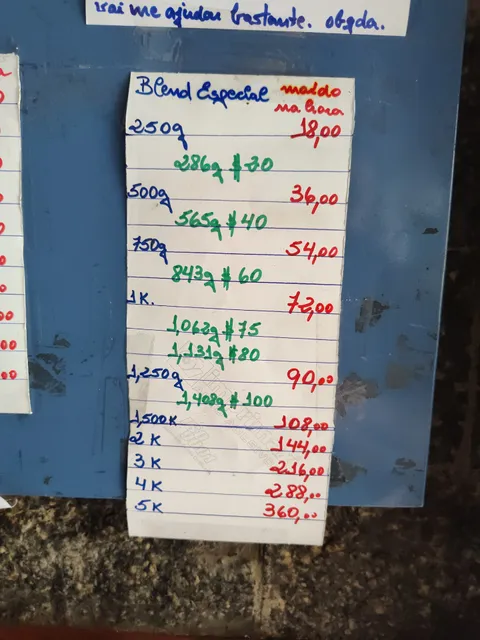 vai me ajudar bastante. obgda.
Blend Especial moído
na hora
250g 18,00
286g $ 30
500g 36,00
565g $ 40
750g 54,00
843g $ 60
1K. 72,00
1,062g $ 75
1,131g $ 80
1,250g 90,00
1,408g $ 100
1,500K 108,00
2 K 144,00
3 K 216,00
4 K 288,00
5 K 360,00